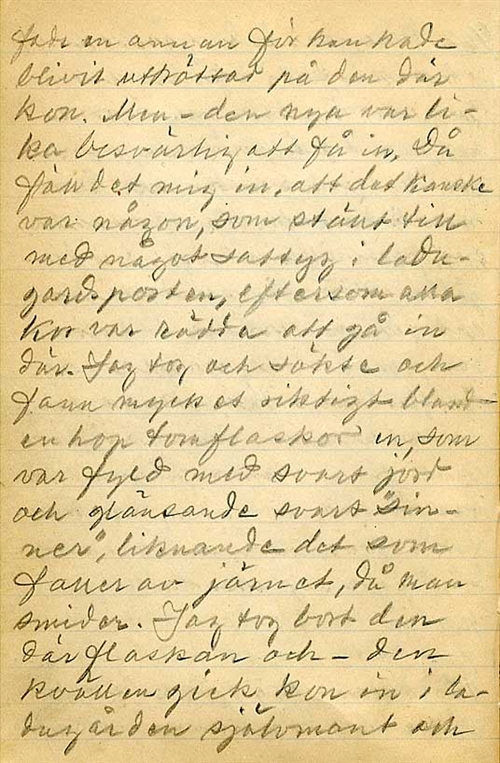 fade en annan för han hade
blivit uttröttad på den där
kon. Men - den nya var li-
ka besvärlig att få in. Då
föll det mig in, att det kanske
var någon, som ställt till
med något sattyg i ladu-
gårdsporten, eftersom alla
kor var rädda att gå in
där. Jag tog och sökte och
fann mycket riktigt bland
en hop tomflaskor en, som
var fylld med svart jord
och glänsande svart "sin-
ner", liknande det som
faller av järnet, då man
smider. Jag tog bort den
där flaskan och - den
kvällen gick kon in i la-
dugården självmant och